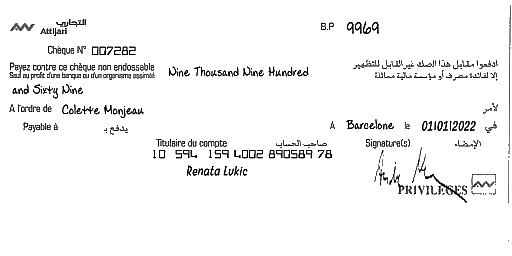 التجاري
Attijari
B.P 9969
Chèque N° 007282
Payez contre ce chèque non endossable
Seul au profit d'une banque ou d'un organisme assimilé
Nine Thousand Nine Hundred
ادفعوا مقابل هذا الصك غير القابل للتظهير
إلا لفائدة مصرف أو مؤسسة مالية مماثلة
and Sixty Nine
A l'ordre de Colette Monjeau
لأمر
Payable à
يدفع بـ
A Barcelone le 01/01/2022 في
Titulaire du compte صاحب الحساب
Signature(s) الإمضاء
10 594 159 4002 890589 78
Renata Lukic
PRIVILEGES